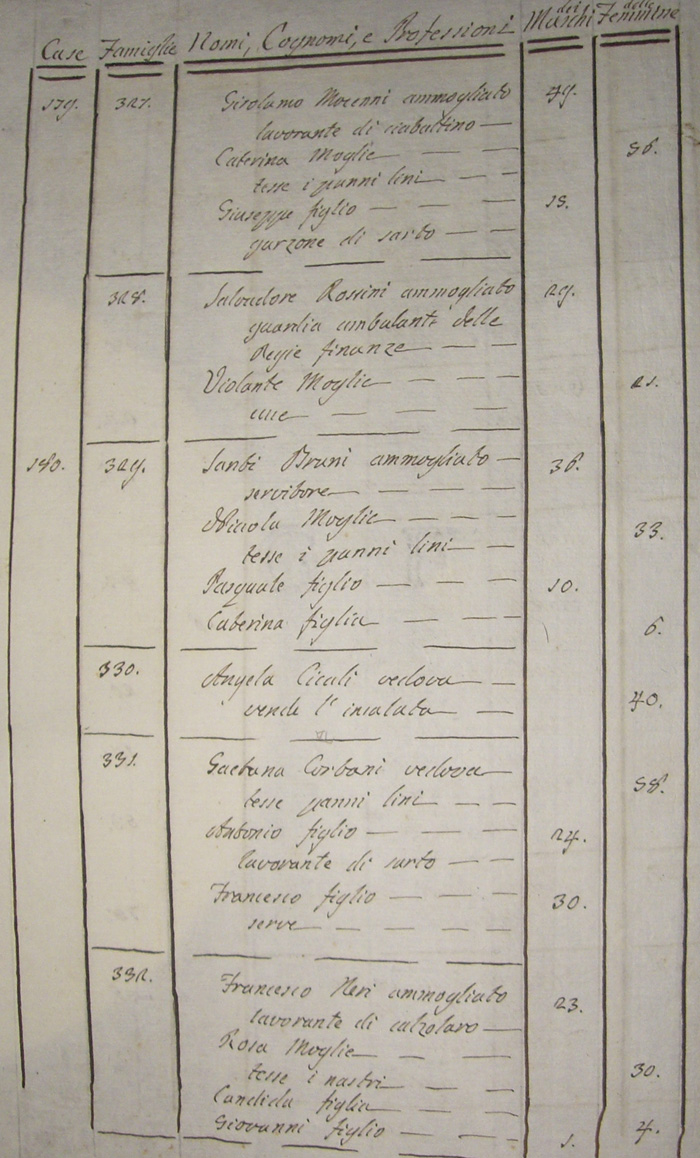 Case Famiglie Nomi, Cognomi, e Professioni dei Maschi delle Femmine
179. 327. Girolamo Mocenni ammogliato 49.
lavorante di ciabattino
Caterina Moglie 56.
tesse i panni lini
Giuseppe figlio 15.
garzone di sarto
328. Salvadore Rossini ammogliato 29.
guardia ambulante delle
Regie finanze
Violante Moglie 21.
cuce
180. 329. Santi Bruni ammogliato 36.
servitore
Niccola Moglie 33.
tesse i panni lini
Pasquale figlio 10.
Caterina figlia 6.
330. Angela Cicali vedova
vende l'insalata 40.
331. Gaetana Corbani vedova 58.
tesse panni lini
Antonio figlio 24.
lavorante di sarto
Francesco figlio 30.
serve
332. Francesco Neri ammogliato 23.
lavorante di calzolaro
Rosa Moglie 30.
tesse i nastri
Candida figlia 4.
Giovanni figlio 1.